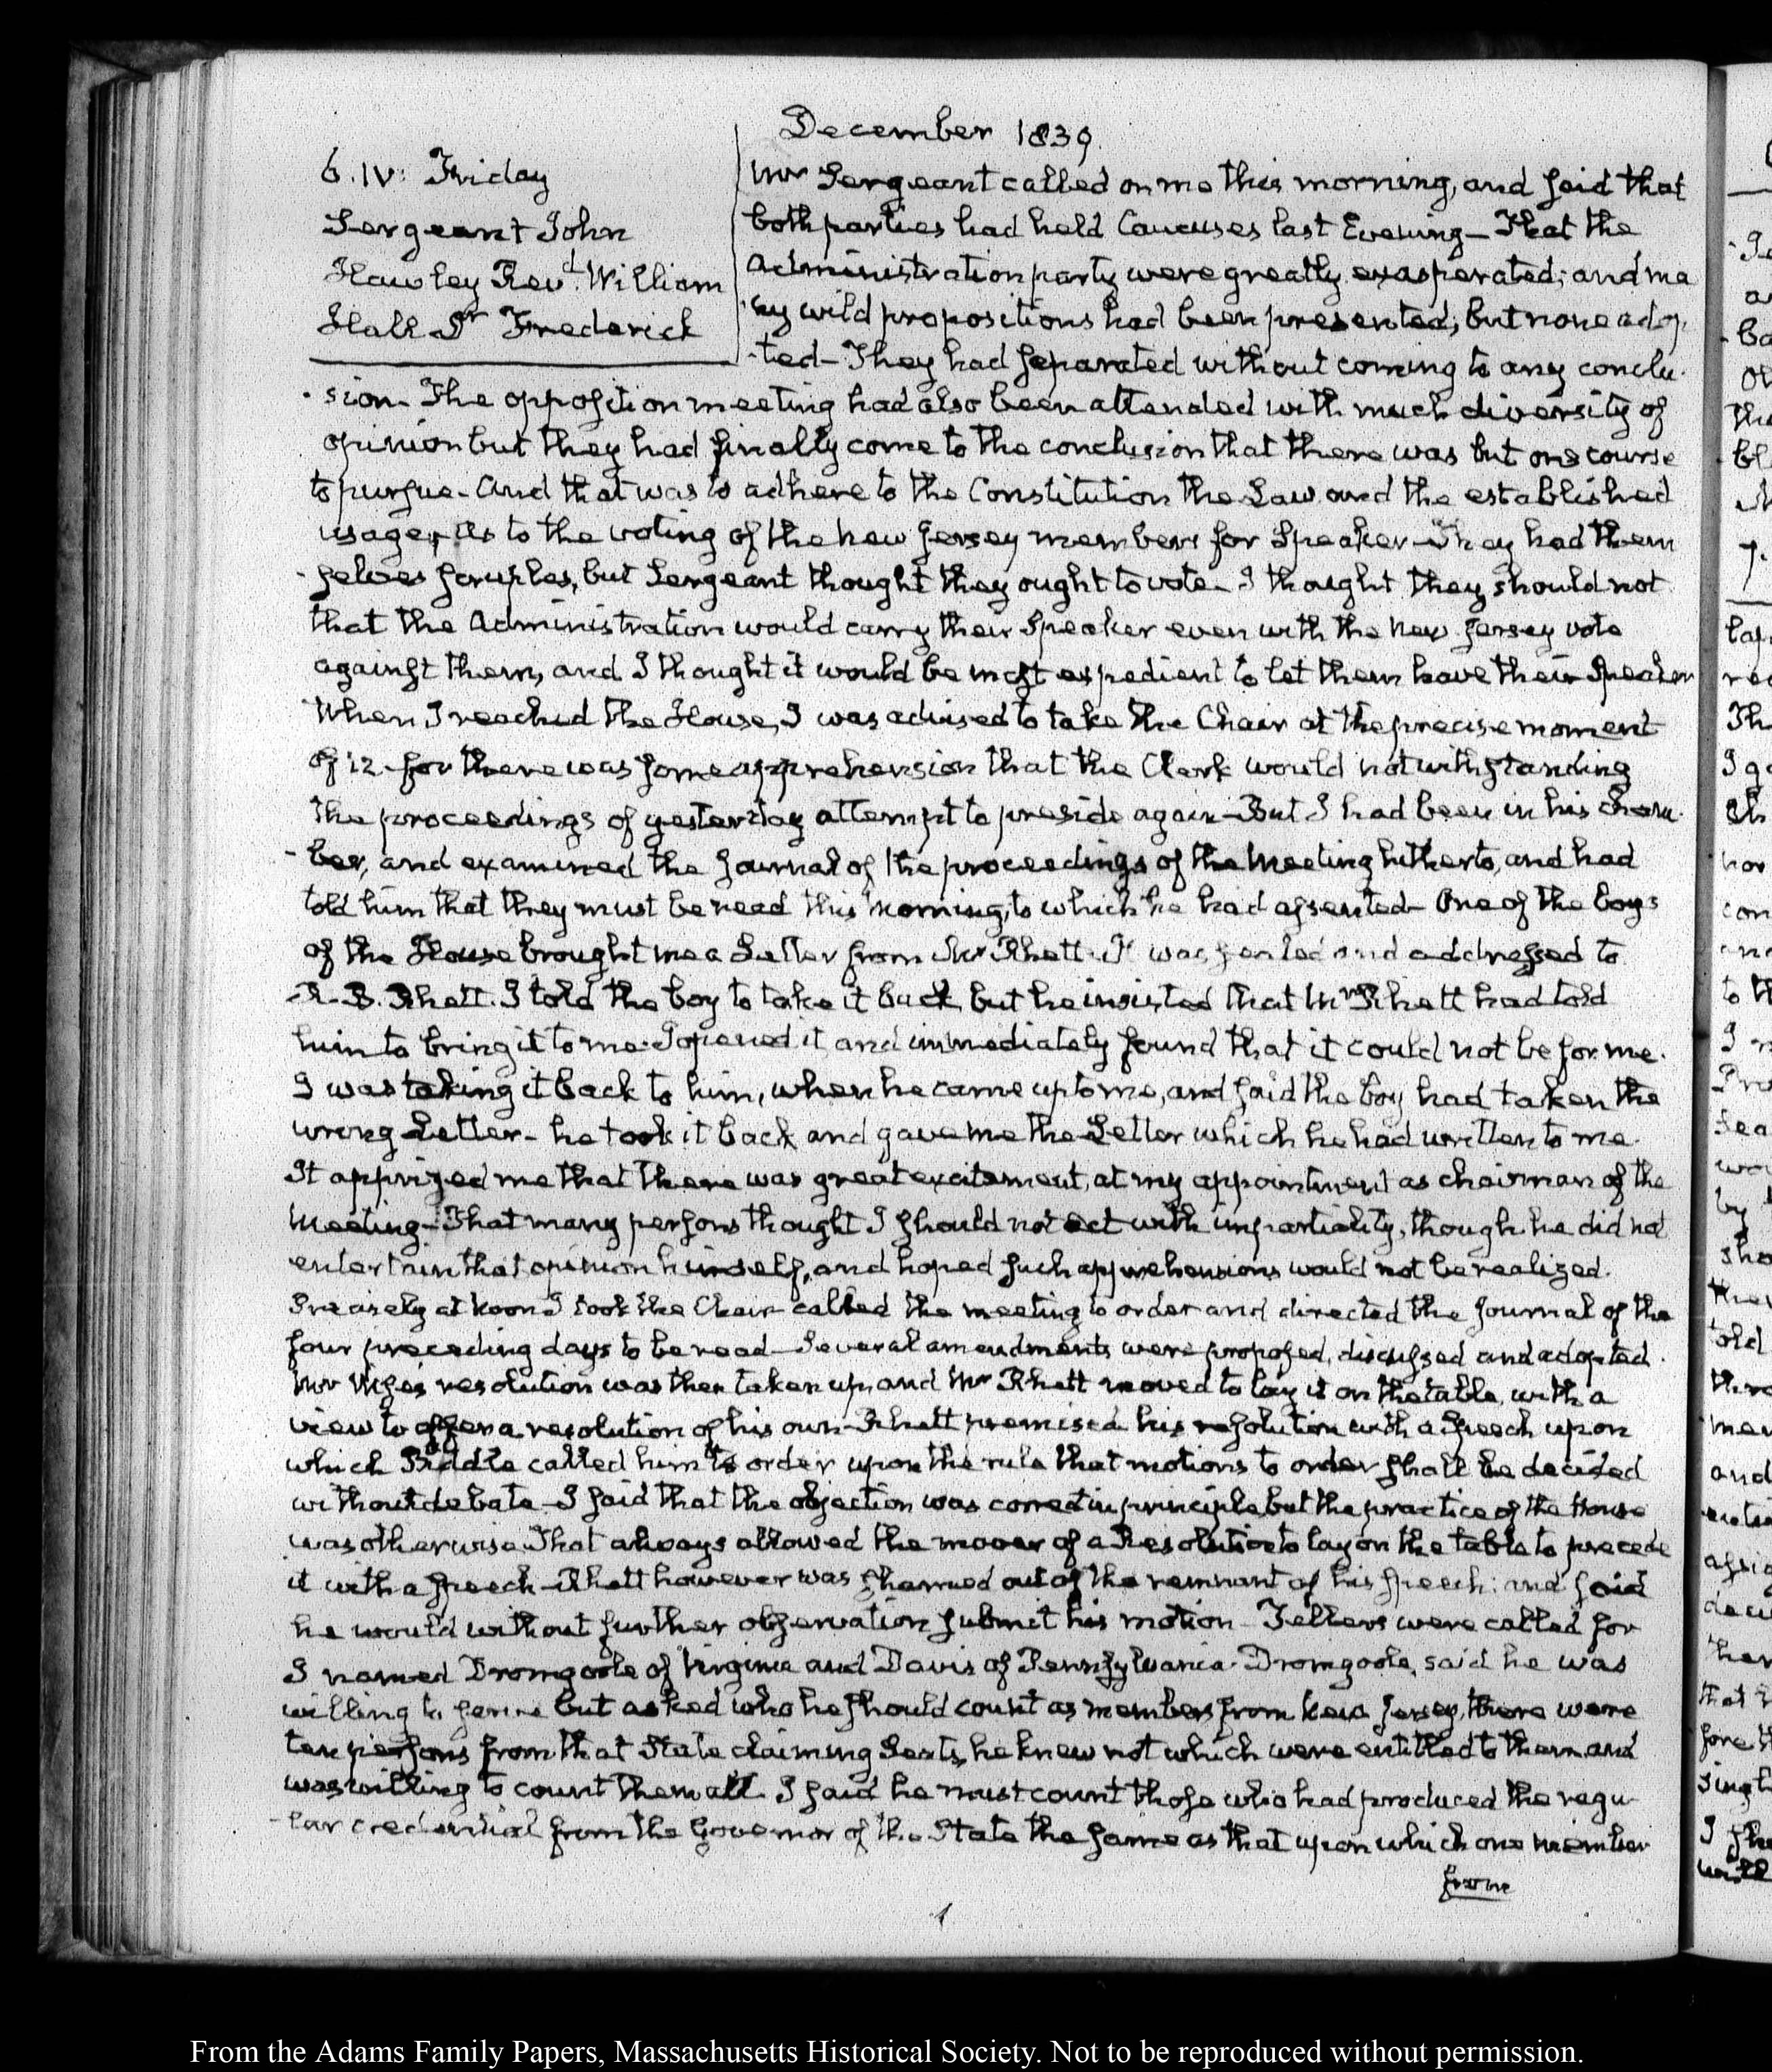 December 1839.
6. IV: Friday
Sergeant John
Hawley Revd. William
Hall Dr Frederick
Mr Sergeant called on me this morning, and said that
both parties had held Caucuses last Evening— That the
Administration party were greatly exasperated; and ma
ny wild propositions had been presented; but none adop-
-ted— They had separated without coming to any conclu-
-sion— The opposition meeting had also been attended with much diversity of
opinion but they had finally come to the conclusion that there was but one course
to pursue— And that was to adhere to the Constitution the Law and the established
usage, As to the voting of the New Jersey members for Speaker— They had them
-selves scruples, but Sergeant thought they ought to vote— I thought they should not
that the Administration would carry their Speaker even with the New Jersey vote
against them, and I thought it would be most expedient to let them have their Speaker
When I reached the House, I was advised to take the Chair at the precise moment
of 12— for there was some apprehension that the Clerk would notwithstanding
the proceedings of yesterday attempt to preside again— But I had been in his cham-
-ber, and examined the Journal of the proceedings of the Meeting hitherto, and had
told him that they must be read this Morning, to which he had assented— One of the boys
of the House brought me a Letter from Mr Rhett. It was sealed and addressed to
R. B. Rhett. I told the boy to take it back, but he insisted that Mr Rhett had told
him to bring it to me. I opened it and immediately found that it could not be for me.
I was taking it back to him, when he came up to me, and said the boy had taken the
wrong Letter— he took it back and gave me the Letter which he had written to me.
It apprized me that there was great excitement, at my appointment as chairman of the
Meeting— That many persons thought I should not act with impartiality, though he did not
entertain that opinion himself, and hoped such apprehensions would not be realized.
Precisely at Noon I took the Chair— called the meeting to order and directed the Journal of the
four preceding days to be read— Several amendments were proposed, discussed and adopted.
Mr Wise's resolution was then taken up, and Mr Rhett moved to lay it on the table, with a
view to offer a resolution of his own— Rhett premised his resolution with a Speech upon
which Biddle called him to order upon the rule that motions to order shall be decided
without debate— I said that the objection was correct in principle but the practice of the House
was otherwise. That always allowed the mover of a Resolution to lay on the table to precede
it with a speech— Rhett however was shamed out of the remnant of his speech; and said
he would without further observation submit his motion— Tellers were called for
I named Dromgoole of Virginia and Davis of Pennsylvania. Dromgoole, said he was
willing to serve but asked who he should count as members from New Jersey, there were
ten persons from that State claiming Seats, he knew not which were entitled to them and
was willing to count them all. I said he must count those who had produced the regu-
-lar credential from the Governor of the State the same as that upon which one member
from
From the Adams Family Papers, Massachusetts Historical Society. Not to be reproduced without permission.